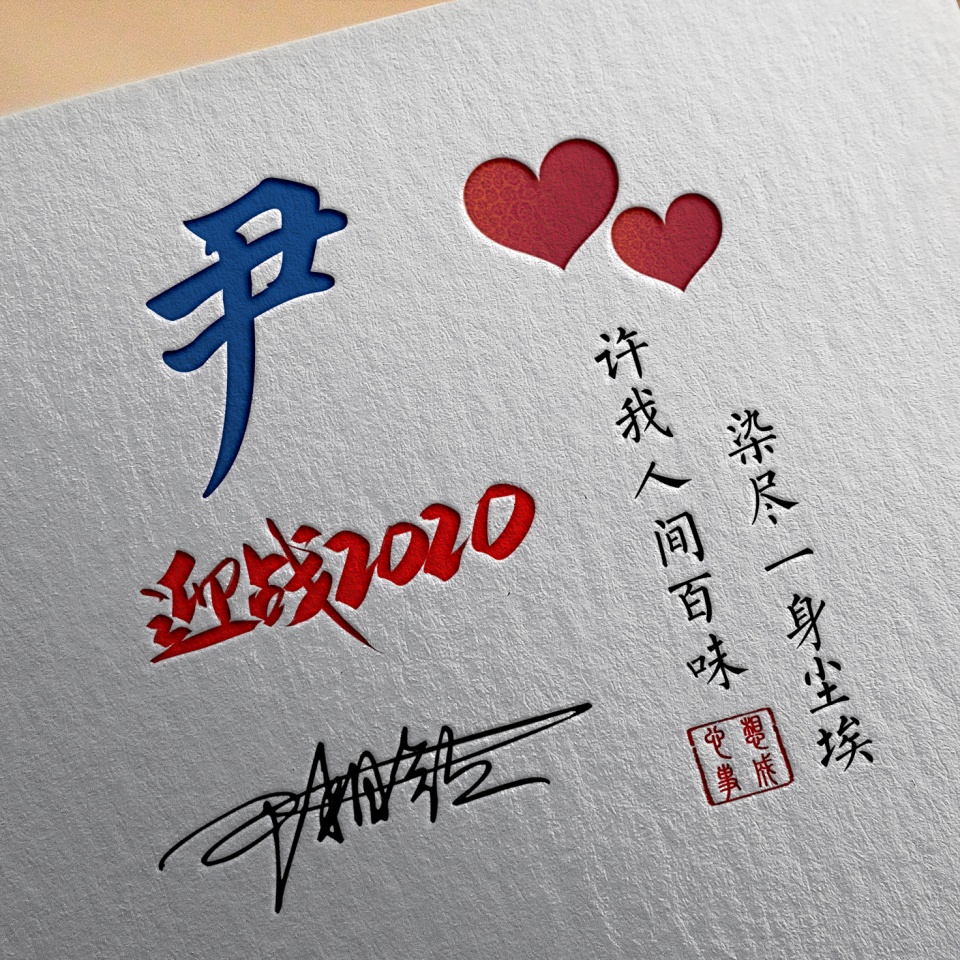 尹
迎战2020
染尽一身尘埃
许我人间百味
心想
事成